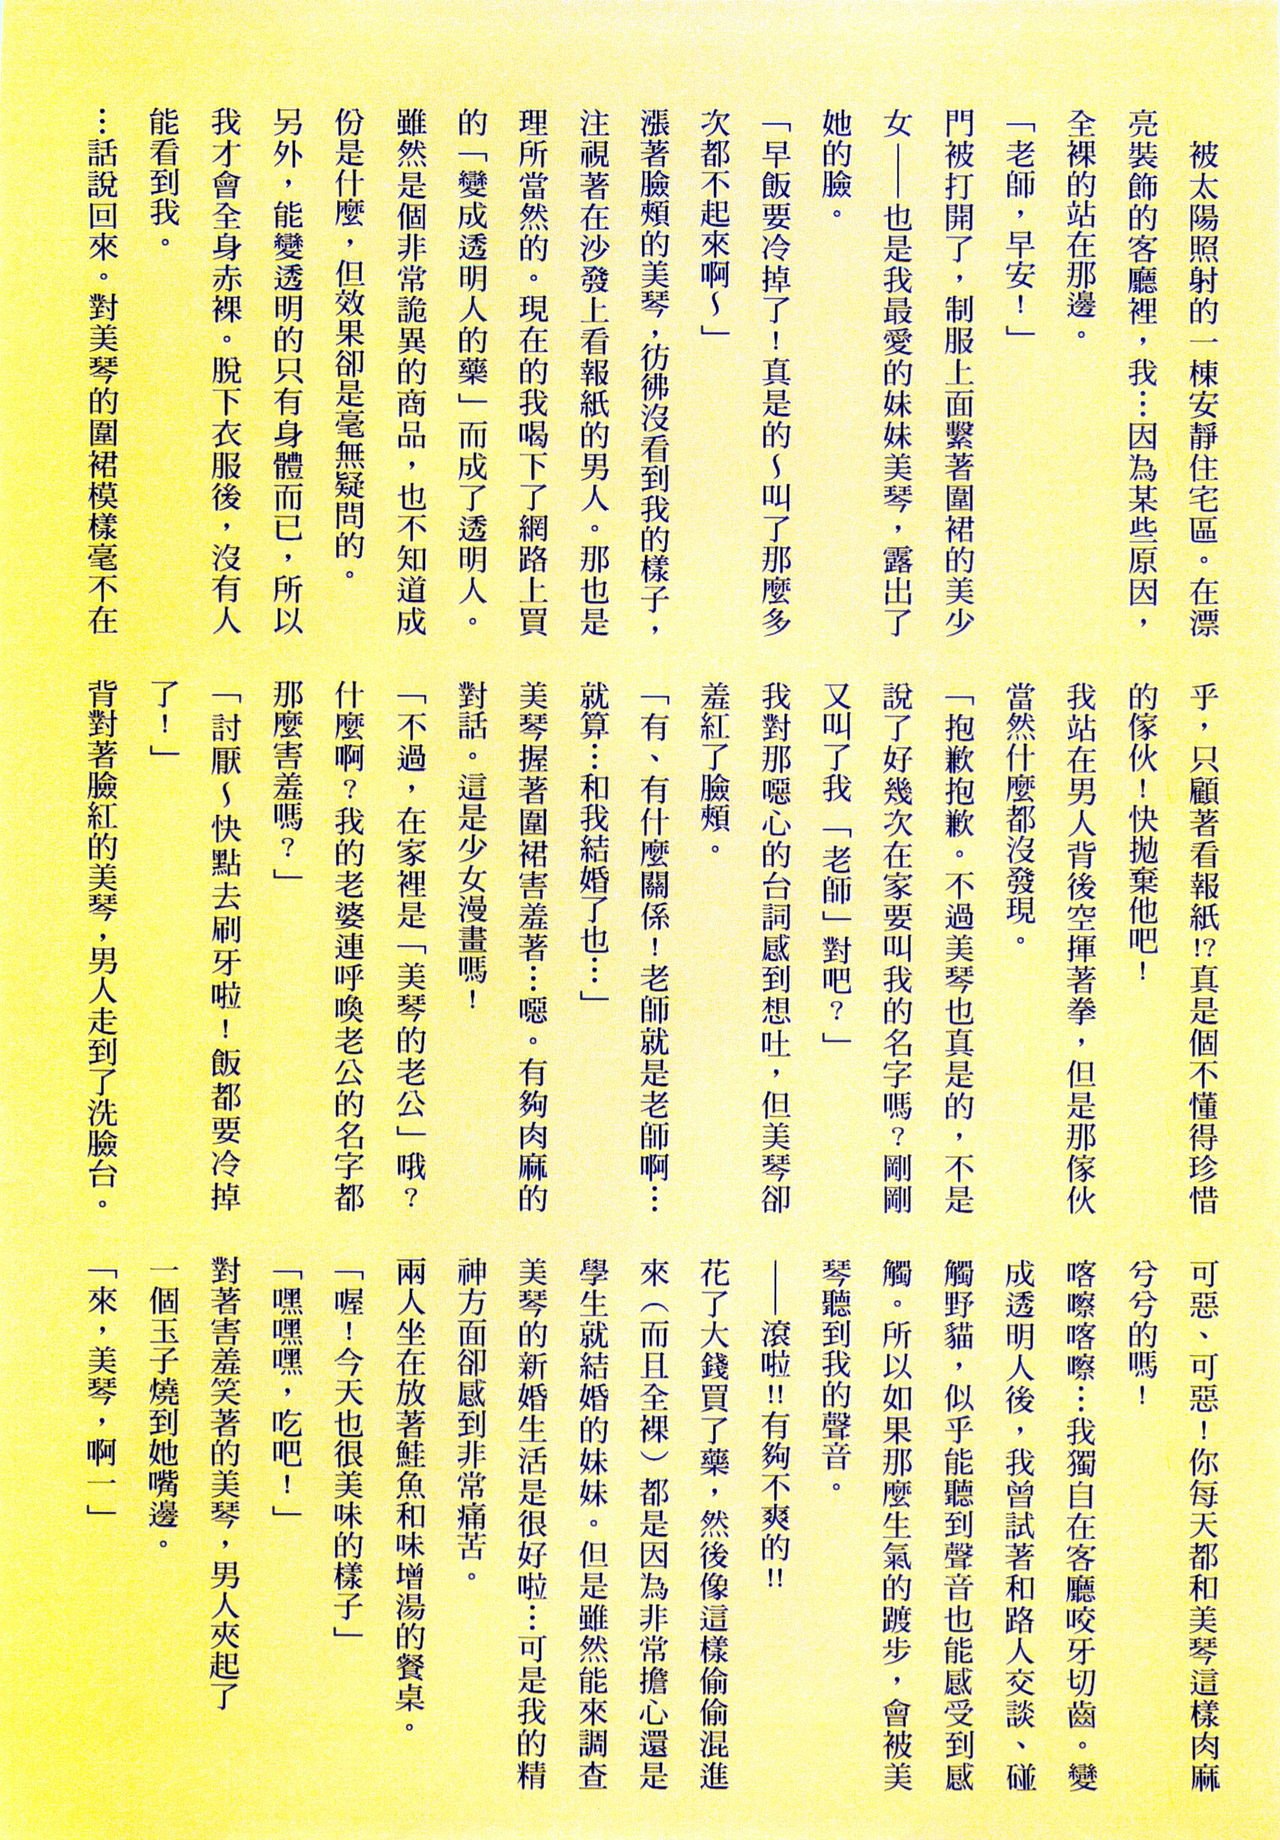 被太陽照射的一棟安靜住宅區。在漂
亮裝飾的客廳裡，我…因為某些原因，
全裸的站在那邊。
「老師，早安！」
門被打開了，制服上面繫著圍裙的美少
女——也是我最愛的妹妹美琴，露出了
她的臉。
「早飯要冷掉了！真是的～叫了那麼多
次都不起來啊～」
漲著臉頰的美琴，彷彿沒看到我的樣子，
注視著在沙發上看報紙的男人。那也是
理所當然的。現在的我喝下了網路上買
的「變成透明人的藥」而成了透明人。
雖然是個非常詭異的商品，也不知道成
份是什麼，但效果卻是毫無疑問的。
另外，能變透明的只有身體而已，所以
我才會全身赤裸。脫下衣服後，沒有人
能看到我。
…話說回來。對美琴的圍裙模樣毫不在
乎，只顧著看報紙!?真是個不懂得珍惜
的傢伙！快拋棄他吧！
我站在男人背後空揮著拳，但是那傢伙
當然什麼都沒發現。
「抱歉抱歉。不過美琴也真是的，不是
說了好幾次在家要叫我的名字嗎？剛剛
又叫了我「老師」對吧？」
我對那噁心的台詞感到想吐，但美琴卻
羞紅了臉頰。
「有、有什麼關係！老師就是老師啊…
就算…和我結婚了也…」
美琴握著圍裙害羞著…噁。有夠肉麻的
對話。這是少女漫畫嗎！
「不過，在家裡是「美琴的老公」哦？
什麼啊？我的老婆連呼喚老公的名字都
那麼害羞嗎？」
「討厭～快點去刷牙啦！飯都要冷掉
了！」
背對著臉紅的美琴，男人走到了洗臉台。
可惡、可惡！你每天都和美琴這樣肉麻
兮兮的嗎！
喀嚓喀嚓…我獨自在客廳咬牙切齒。變
成透明人後，我曾試著和路人交談、碰
觸野貓，似乎能聽到聲音也能感受到感
觸。所以如果那麼生氣的踱步，會被美
琴聽到我的聲音。
——滾啦!!有夠不爽的!!
花了大錢買了藥，然後像這樣偷偷混進
來（而且全裸）都是因為非常擔心還是
學生就結婚的妹妹。但是雖然能來調查
美琴的新婚生活是很好啦…可是我的精
神方面卻感到非常痛苦。
兩人坐在放著鮭魚和味增湯的餐桌。
「喔！今天也很美味的樣子」
「嘿嘿嘿，吃吧！」
對著害羞笑著的美琴，男人夾起了
一個玉子燒到她嘴邊。
「來，美琴，啊一」